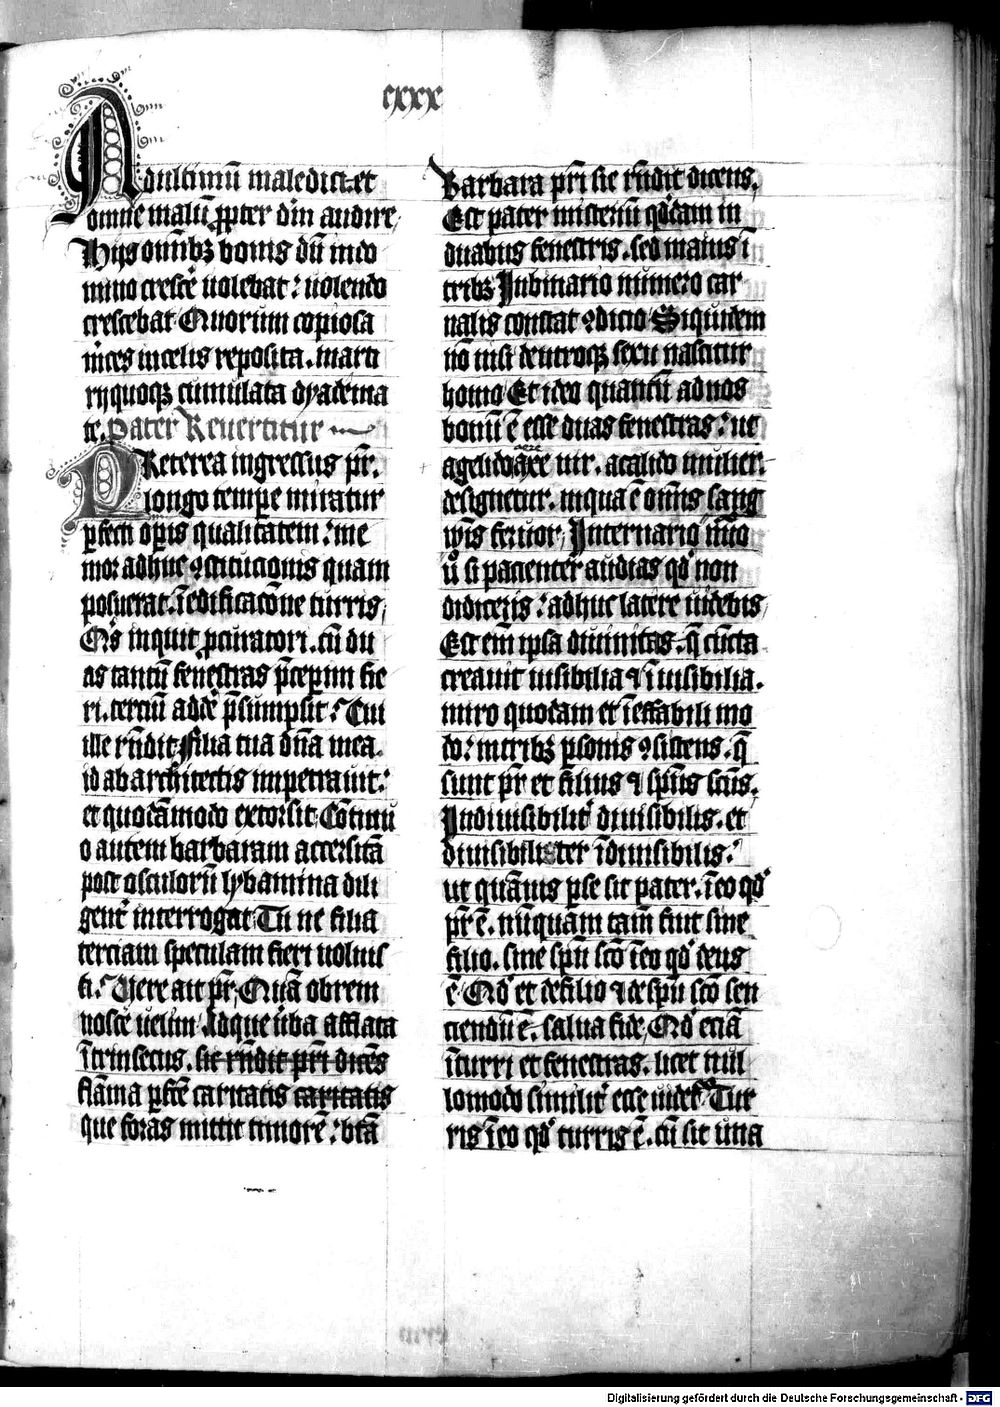 cxxx
Adultimū maledict et
omne malū ꝓpter dn̄i audire
Hijs om̄ibꝫ bonis dū indo
mino crescē uolebat: uolendo
crescebat Quorum copiosa
m̄ces incelis reposita. marti
rijquoqꝫ cumulata dyadema
te. Pater Reuertitur
PReterea ingressus pr̄.
longo tempe miratur
ꝑfecti opis qualitatem: me
mor adhuc ꝯstitucionis quam
posuerat. ī edificacōne turris,
Qͥs inquit ꝓcuratori. cū du
as tantū fenestras p̄cepim fie
ri. terciū addē p̄sumpsit: Cui
ille rn̄dit Filia tua dn̄a mea.
id ab architectis impetrauit:
et quodāmodo extorsit Cōtinu
o autem barbaram accersitā
post osculorū lybamina dili
gent᷑ interrogat Tu ne filia
terciam speculam fieri uoluis
ti: Vere ait pr̄, Quā obrem
noscē uelim Adque ūba afflata
ītrinsecus. sic rn̄dit pri dicēs
flāma ꝑfcē caritatis caritatis
que foras mittit timorē: btā
Barbara pri sic rn̄dit dicens.
Est pater misteriū qd̄dam in
duabus fenestris. sed maius ī
tribꝫ Inbinario numero car
nalis constat ꝯdicio Siquidem
nō nisi deutroqꝫ sexu nascitur
homo Et ideo quantū adnos
bonū ē esse duas fenestras: ut
agelido axe uir. acalido mulier.
designetur. inqua ē om̄is sang
wīs feruor, Internario nūo
uͦ si pacienter audias qd̄ non
didiceris: adhuc latere uidebis,
Est em̄ ipsa diuinitas. q̄ cūcta
creauit uisibilia & īuisibilia.
miro quodam et īeffabili mo
do: intribꝫ ꝑsonis ꝯsistens. q̄
sunt pr̄ et filius & spūs scūs.
Indiuisibilit᷑ diuisibilis. et
diuisibiliter īdiuisibilis:
ut quāuis ꝑse sit pater. īeo qd̄
pr̄ ē. nūquam tam̄ fuit sine
filio. sine spū scō īeo qd̄ deus
ē Qd̄ et defilio & despū scō sen
ciendū ē. salua fide, Qd̄ eciā
īturri et fenestras. licet nul
lomodo similit᷑ esse uidet᷑ Tur
ris īeo qd̄ turris ē. cū sit una
Digitalisierung gefördert durch die Deutsche Forschungsgemeinschaft - DFG